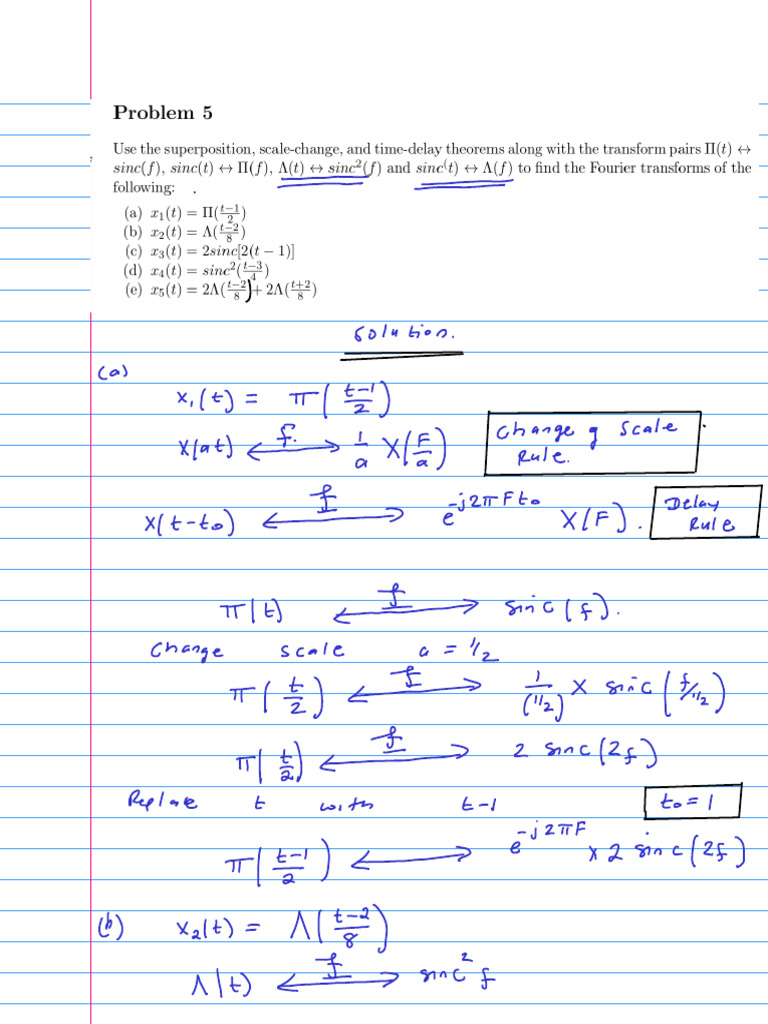 Problem 5
Use the superposition, scale-change, and time-delay theorems along with the transform pairs Π(t) ↔
sinc(f), sinc(t) ↔ Π(f), Λ(t) ↔ sinc²(f) and sinc⁽t) ↔ Λ(f) to find the Fourier transforms of the
following:
(a) x₁(t) = Π(\frac{t−1}{2})
(b) x₂(t) = Λ(\frac{t−2}{8})
(c) x₃(t) = 2sinc[2(t − 1)]
(d) x₄(t) = sinc²(\frac{t−3}{4})
(e) x₅(t) = 2Λ(\frac{t−2}{8}) + 2Λ(\frac{t+2}{8})
Solution.
(a)
x₁(t) = π(\frac{t-1}{2})
x(at) ⟷ f. \frac{1}{a} X(\frac{F}{a})
Change of Scale
Rule.
x(t-t₀) ⟷ f e^{-j2πFt₀} X(F).
Delay
Rule
π(t) ⟷ f sinc(f).
Change scale a = 1/2
π(\frac{t}{2}) ⟷ f \frac{1}{(1/2)} × sinc(f/1/2)
π(\frac{t}{2}) ⟷ f 2 sinc(2f)
Replace t with t-1 t₀ = 1
π(\frac{t-1}{2}) ⟷ e^{-j2πF} × 2 sinc(2f)
(b) x₂(t) = Λ(\frac{t-2}{8})
Λ(t) ⟷ f sinc² f